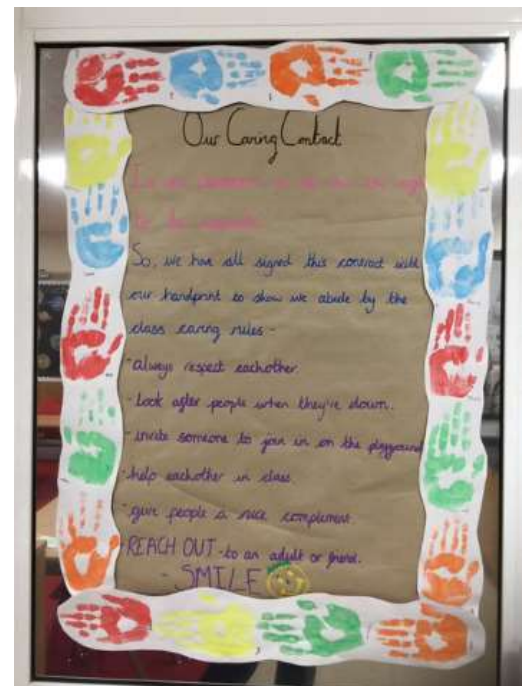 Our Caring Contract
In our classroom we all have the right
to be
So, we have all signed this contract with
our handprint to show we abide by the
class caring rules -
- always respect eachother.
- Look after people when they're down.
- invite someone to join in on the playground
- help eachother in class.
- give people a nice compliment.
- REACH OUT - to an adult or friend.
- SMILE